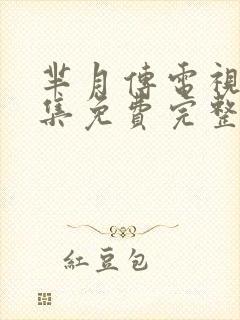 芈月傳電視
集免費完整
紅豆包